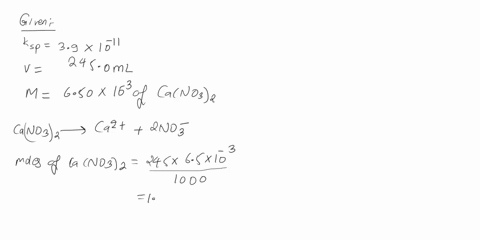 Given:
Ksp = 3.9 × 10⁻¹¹
V = 245.0mL
M = 6.50 × 10³ of Ca(NO3)2
Ca(NO3)2 → Ca2+ + 2NO3⁻
moles of Ca(NO3)2 = 245 × 6.5 × 10⁻³
1000
= 1.